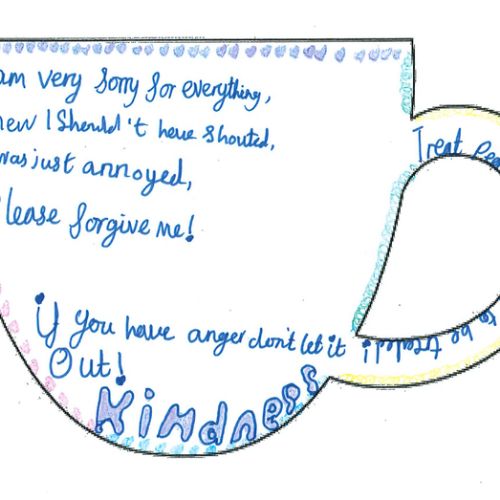 am very sorry for everything,
new I Should't have shouted,
was just annoyed,
lease forgive me!
if you have anger don't let it
Out!
Kindness
Treat Pe
to be treated!